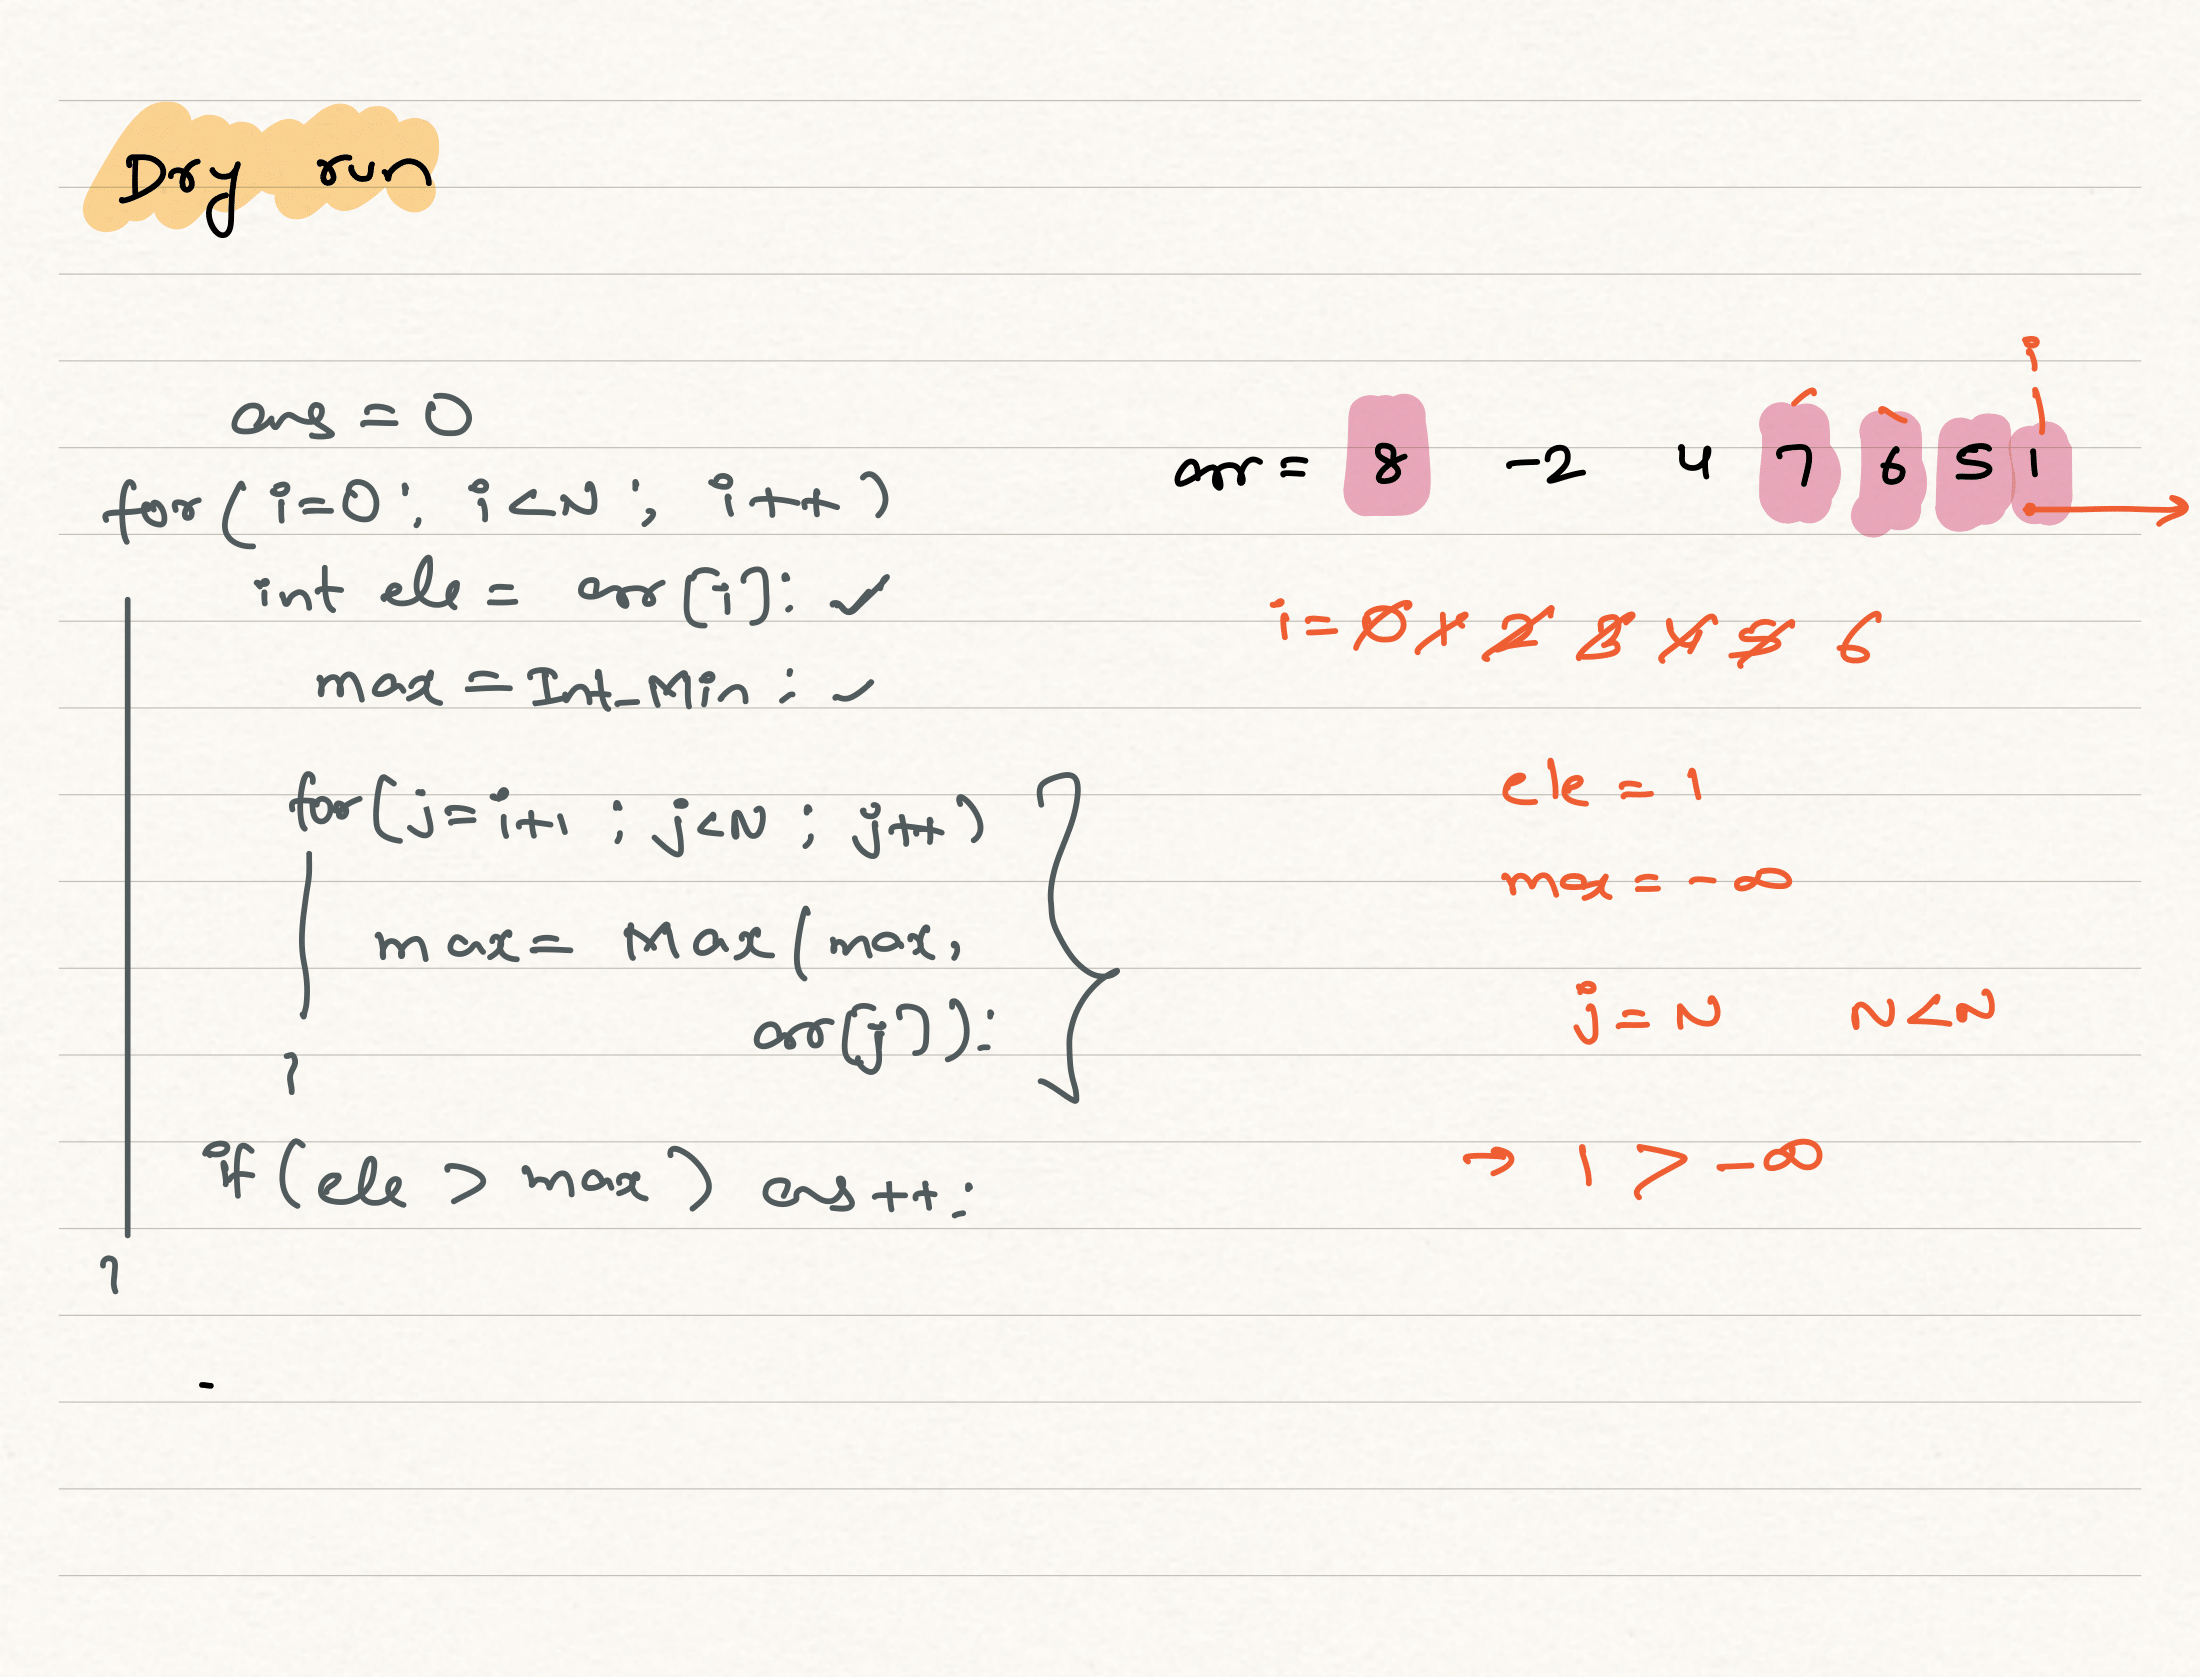 Dry run
ans = 0
for ( i=0 ; i<N ; i++ )
int ele = arr[i];
max = Int_Min ;
for ( j=i+1 ; j<N ; j++ )
max = Max ( max,
arr[j] );
}
if ( ele > max ) ans++;
}
i
arr = 8 -2 4 7 6 5 1
i = 0 1 2 3 4 5 6
ele = 1
max = - ∞
j = N N < N
→ 1 > - ∞